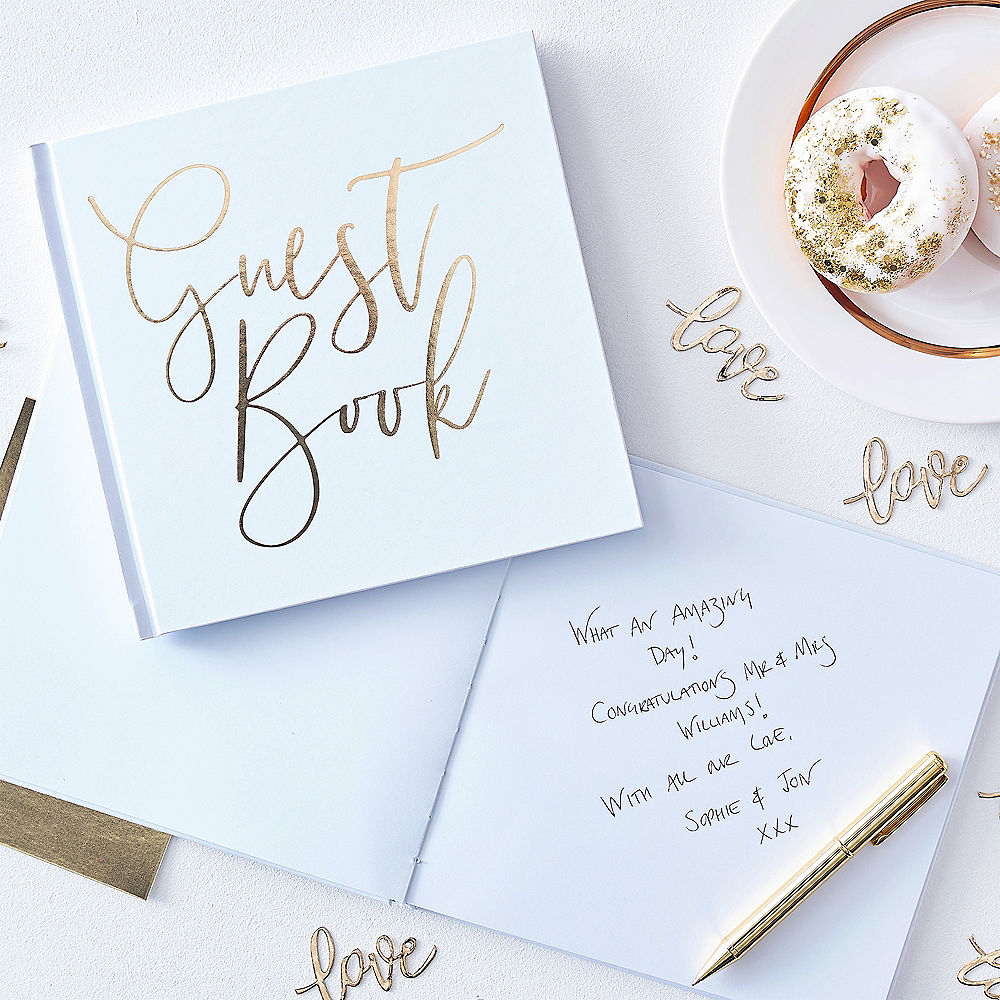 Guest
Book
love
love
WHAT AN AMAZING
DAY!
CONGRATULATIONS MR & MRS
WILLIAMS!
WITH ALL OUR LOVE,
SOPHIE & JON
XXX
love